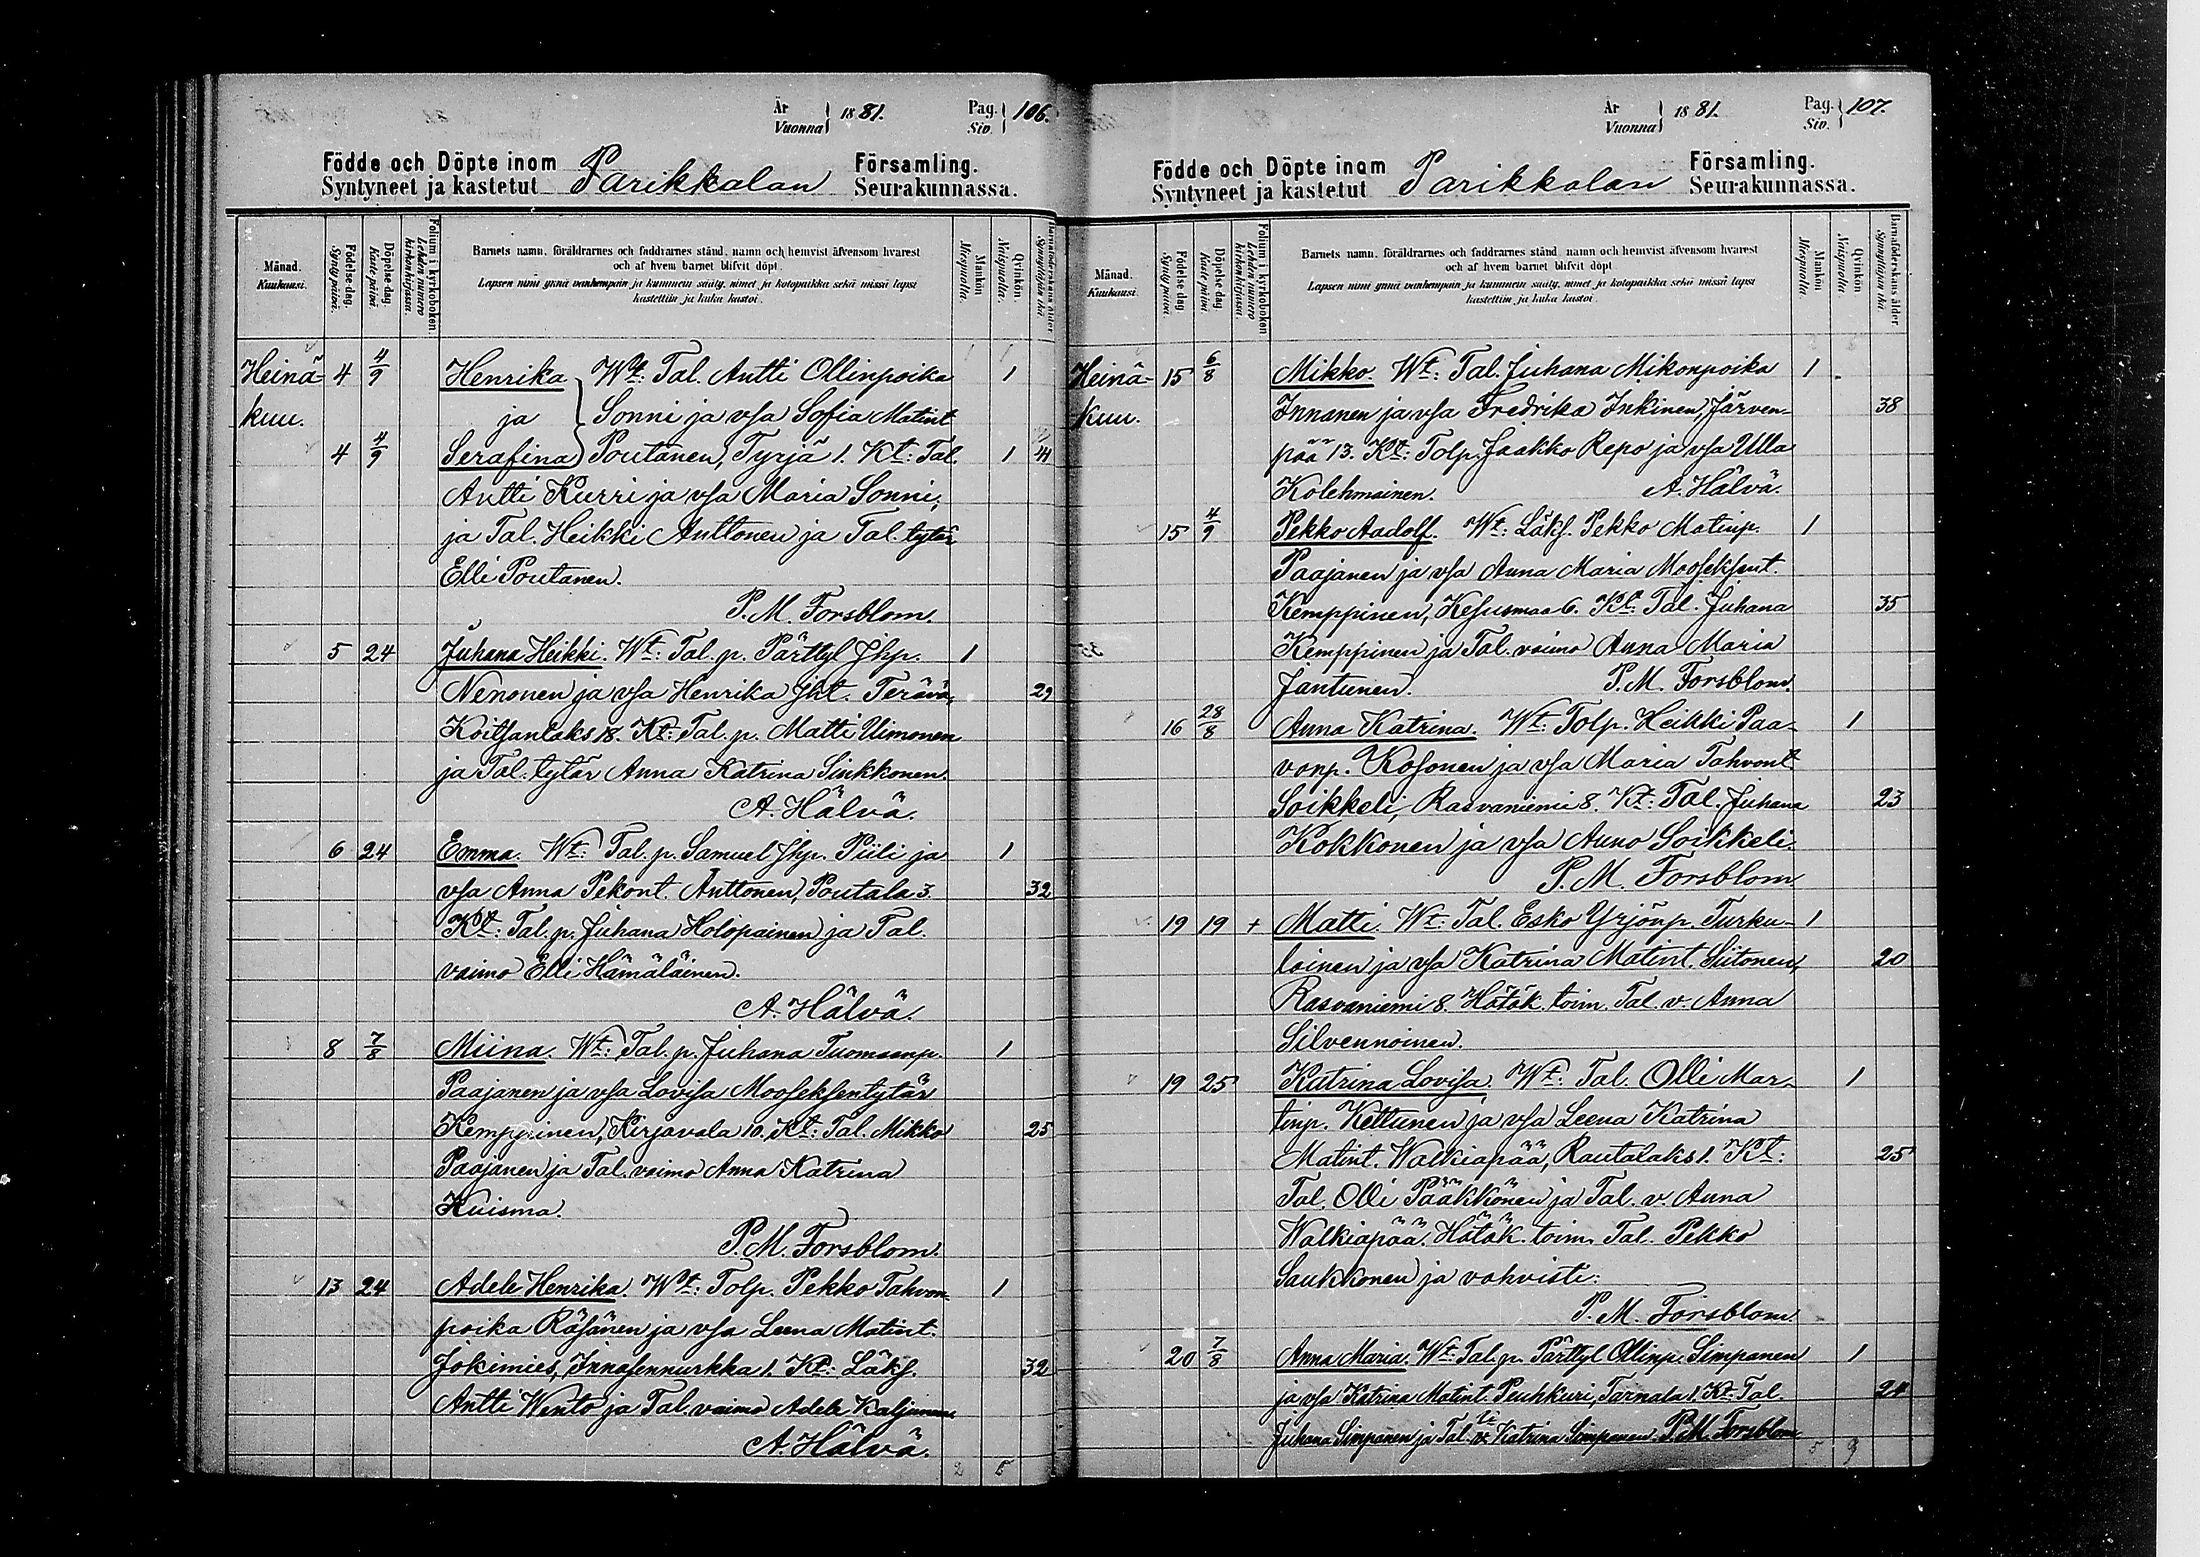 År Vuonna 1881. Pag. Siv. 106.
Födde och Döpte inom Parikkalan Församling.
Syntyneet ja kastetut Seurakunnassa.
Månad. Kuukausi.
Födelse dag. Syntypäivä.
Döpelse dag. Kaste päivä.
Folium i kyrkoboken. Lehden numero kirkonkirjassa.
Barnets namn, föräldrarnes och faddrarnes stånd, namn och hemvist äfvensom hvarest
och af hvem barnet blifvit döpt.
Lapsen nimi ynnä vanhempain ja kummein sääty, nimet ja kotopaikka sekä missä lapsi
kastettiin ja kuka kastoi.
Mankön Miespuolia.
Qvinkön Naispuolia.
Barnaföderskans ålder Synnyttäjän ikä
Heinä- 4 4/9 Henrika Wt: Tal. Antti Ollinpoika 1
kuu. ja Sonni ja vsa Sofia Matint
4 4/9 Serafina Poutanen, Tyrjä 1. Kt: Tal. 1 41
Antti Kurri ja vsa Maria Sonni,
ja Tal. Heikki Anttonen ja Tal. tytär
Elli Poutanen.
P. M. Forsblom.
5 24 Juhana Heikki. Wt: Tal. p. Pärttyl Jhp. 1
Nenonen ja vsa Henrika Jht. Terävä, 29
Koitsanlaks 18. Kt: Tal. p. Matti Uimonen
ja Tal. tytär Anna Katrina Sinkkonen.
A. Hälvä.
6 24 Emma. Wt: Tal. p. Samuel Jhp. Piili ja 1
vsa Anna Pekont. Anttonen, Poutala 3. 32
Kt: Tal. p. Juhana Holopainen ja Tal.
vaimo Elli Hämäläinen.
A. Hälvä.
8 7/8 Miina. Wt: Tal. p. Juhana Tuomaanp. 1
Paajanen ja vsa Lovisa Mooseksentytär
Kemppinen, Kirjavala 10. Kt: Tal. Mikko 25
Paajanen ja Tal. vaimo Anna Katrina
Kuisma.
P. M. Forsblom.
13 24 Adele Henrika. Wt: Tolp. Pekko Tahvon- 1
poika Räsänen ja vsa Leena Matint.
Jokimies, Innasennurkka 1. Kt: Läks. 32
Antti Wento ja Tal. vaimo Adele Kaljunen
A. Hälvä.
2 5
År Vuonna 1881. Pag. Siv. 107.
Födde och Döpte inom Parikkalan Församling.
Syntyneet ja kastetut Seurakunnassa.
Månad. Kuukausi.
Födelse dag. Synty päivä.
Döpelse dag. Kaste päivä.
Folium i kyrkoboken. Lehden numero kirkonkirjassa.
Barnets namn, föräldrarnes och faddrarnes stånd, namn och hemvist äfvensom hvarest
och af hvem barnet blifvit döpt
Lapsen nimi ynnä vanhempain ja kummein sääty, nimet ja kotopaikka sekä missä lapsi
kastettiin ja kuka kastoi.
Mankön Miespuolia.
Qvinkön Naispuolia.
Barnaföderskans ålder Synnyttäjän ikä
Heinä- 15 6/8 Mikko Wt: Tal. Juhana Mikonpoika 1
kuu. Innanen ja vsa Fredrika Inkinen, Järven- 38
pää 13. Kt: Tolp. Jaakko Repo ja vsa Ulla
Kolehmainen. A. Hälvä.
15 4/9 Pekko Aadolf. Wt: Läks. Pekko Matinp. 1
Paajanen ja vsa Anna Maria Mooseksent.
Kemppinen, Kesusmaa 6. Kt: Tal. Juhana 35
Kemppinen ja Tal. vaimo Anna Maria
Jantunen. P. M. Forsblom.
16 28/8 Anna Katrina. Wt: Tolp. Heikki Paa- 1
vonp. Kosonen ja vsa Maria Tahvont
Soikkeli, Rasvaniemi 8. Kt: Tal. Juhana 23
Kokkonen ja vsa Anna Soikkeli.
P. M. Forsblom
19 19 + Matti. Wt: Tal. Esko Yrjönp. Turku- 1
lainen ja vsa Katrina Matint. Siitonen, 20
Rasvaniemi 8. Hätäk. toim. Tal. v. Anna
Silvennoinen.
19 25 Katrina Lovisa. Wt: Tal. Olli Mar- 1
tinp. Kettunen ja vsa Leena Katrina
Matint. Walkiapää, Rautalaks 1. Kt: 25
Tal. Olli Pääkkönen ja Tal. v. Anna
Walkiapää. Hätäk. toim. Tal. Pekko
Saukkonen ja vahvisti:
P. M. Forsblom.
20 7/8 Anna Maria. Wt: Tal. p. Pärttyl Ollinp. Simpanen 1
ja vsa Katrina Matint. Peuhkuri, Tarnala 1. Kt: Tal. 24
Juhana Simpanen ja Tal. v. Katrina Simpanen. P. M. Forsblom
5 9